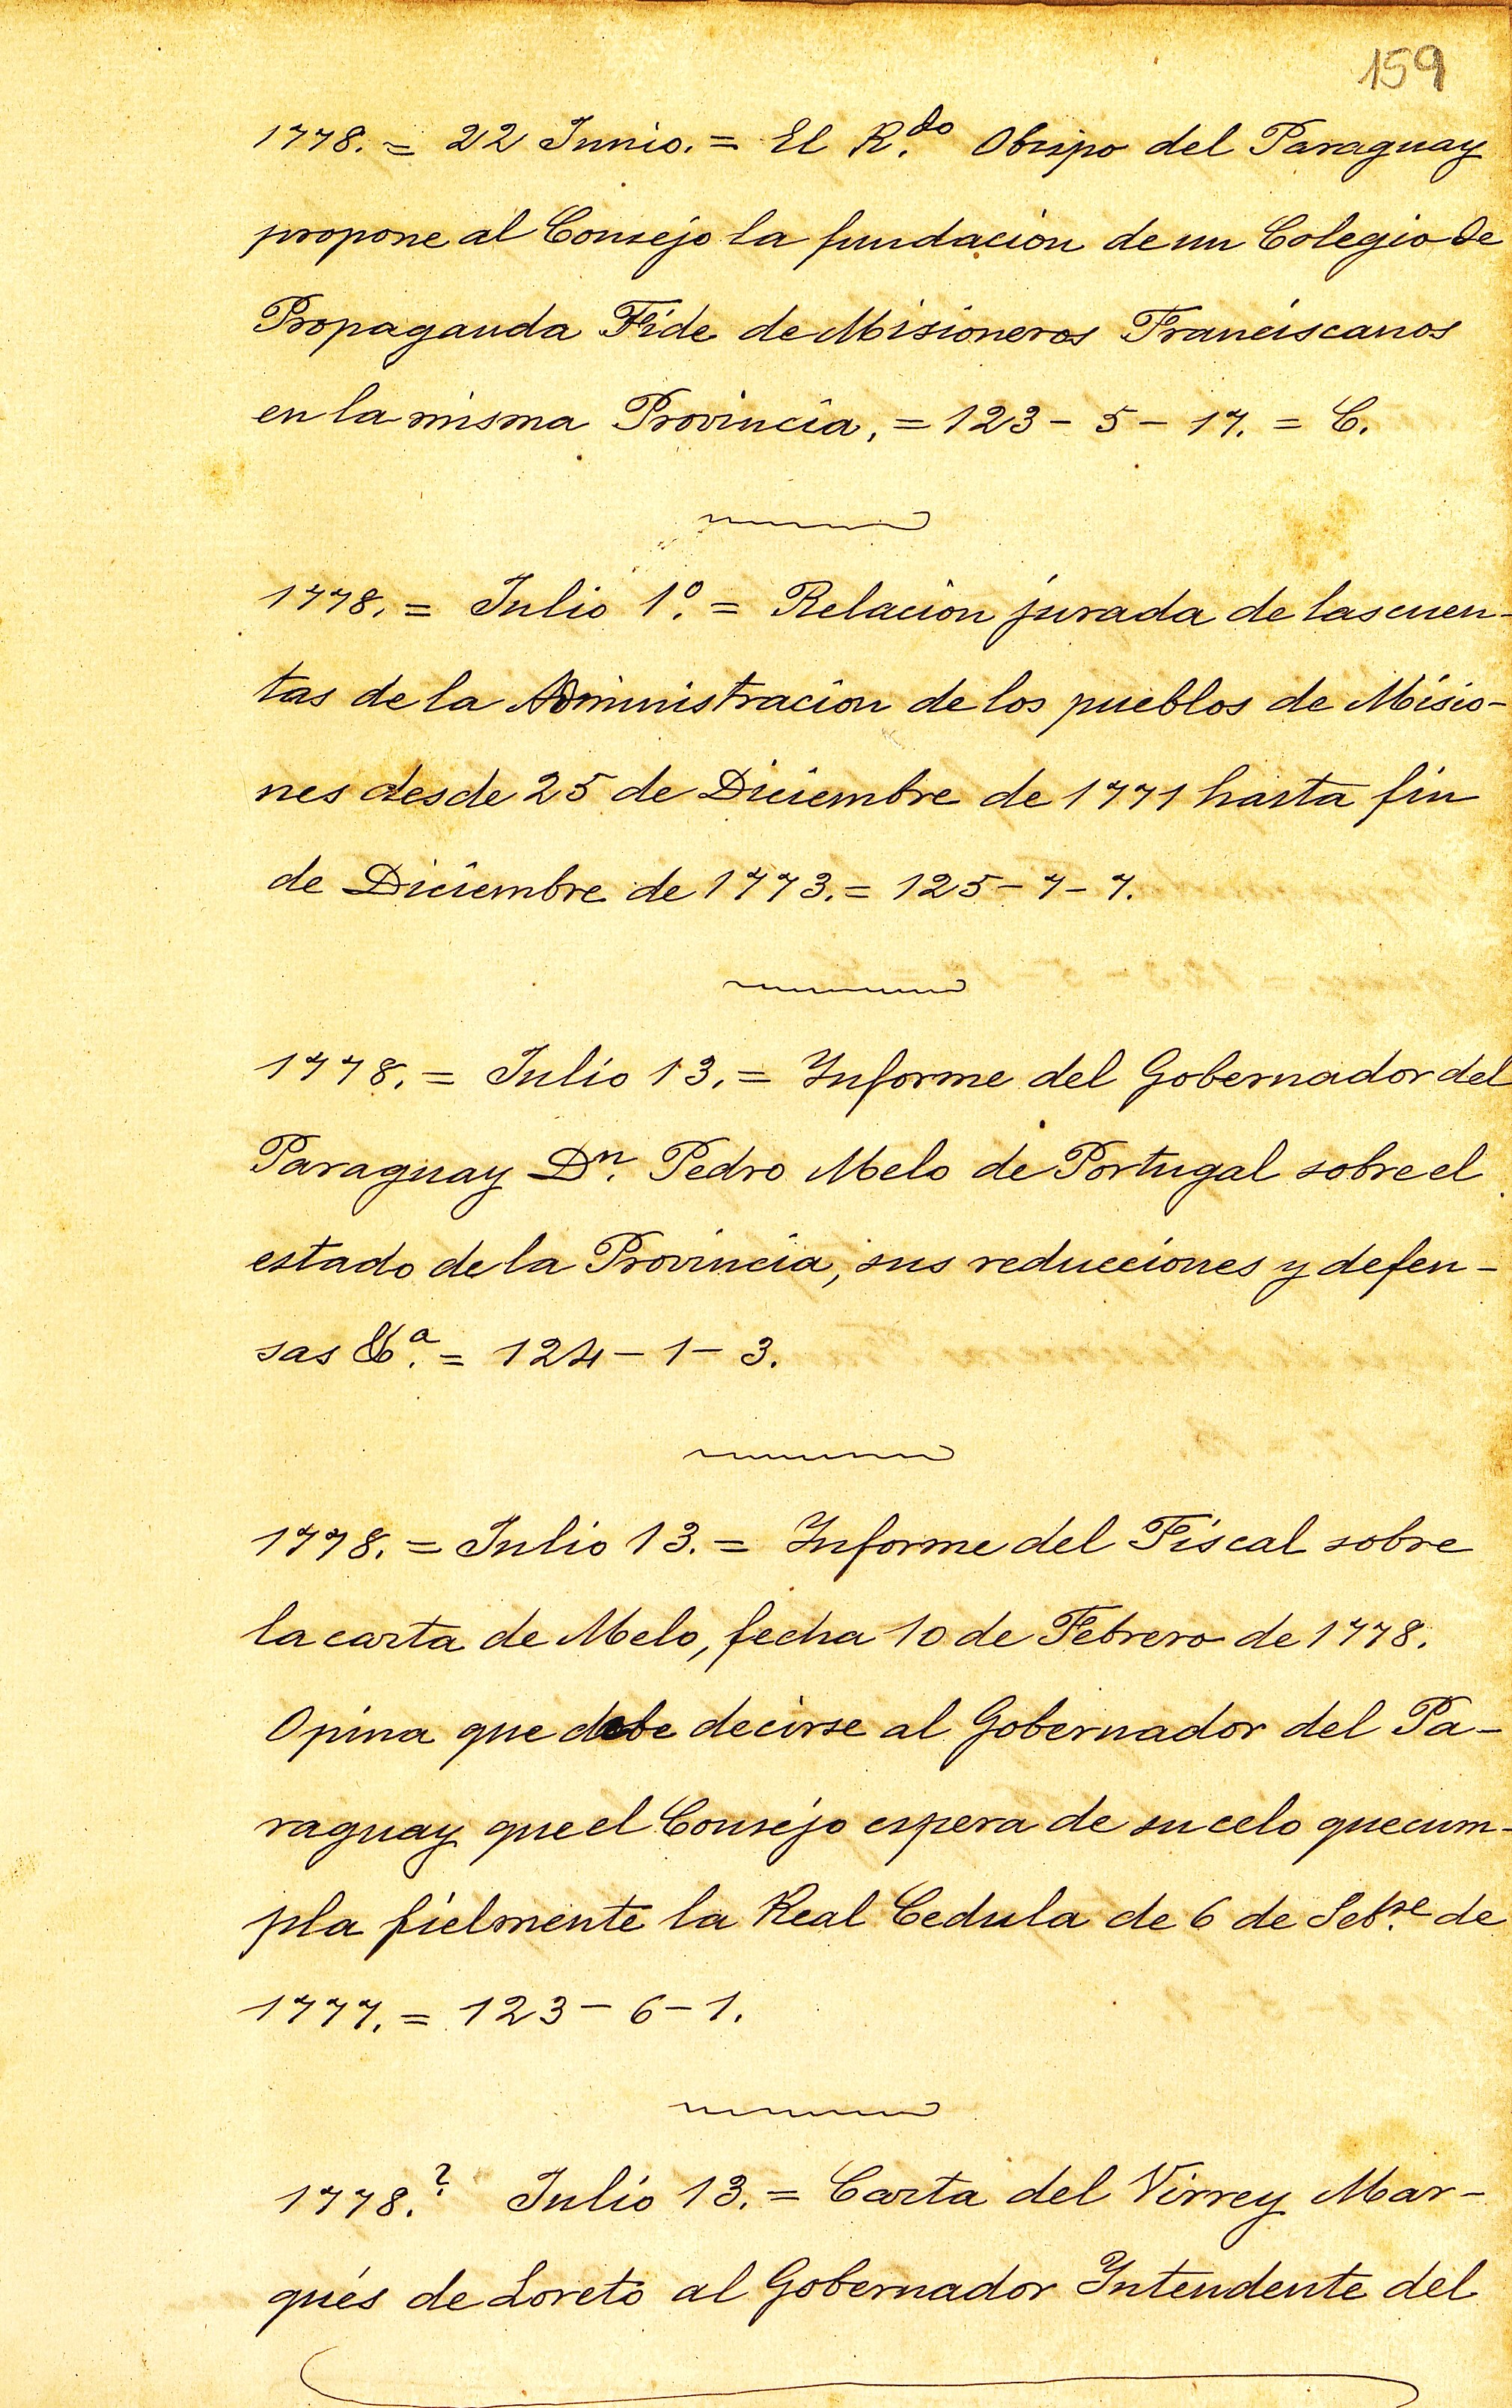 159
1778. = 22 Junio. = El R.do Obispo del Paraguay
propone al Consejo la fundacion de un Colegio de
Propaganda Fide de Misioneros Franciscanos
en la misma Provincia. = 123 - 5 - 17. = C.
1778. = Julio 1º. = Relacion jurada de las cuen-
tas de la Administracion de los pueblos de Misio-
nes desde 25 de Diciembre de 1771 hasta fin
de Diciembre de 1773. = 125 - 7 - 7.
1778. = Julio 13. = Informe del Gobernador del
Paraguay Dn. Pedro Melo de Portugal sobre el
estado de la Provincia, sus reducciones y defen-
sas &a. = 124 - 1 - 3.
1778. = Julio 13. = Informe del Fiscal sobre
la carta de Melo, fecha 10 de Febrero de 1778.
Opina que debe decirse al Gobernador del Pa-
raguay que el Consejo espera de su celo que cum-
pla fielmente la Real Cedula de 6 de Setbre. de
1777. = 123 - 6 - 1.
1778.? Julio 13. = Carta del Virrey Mar-
qués de Loreto al Gobernador Intendente del